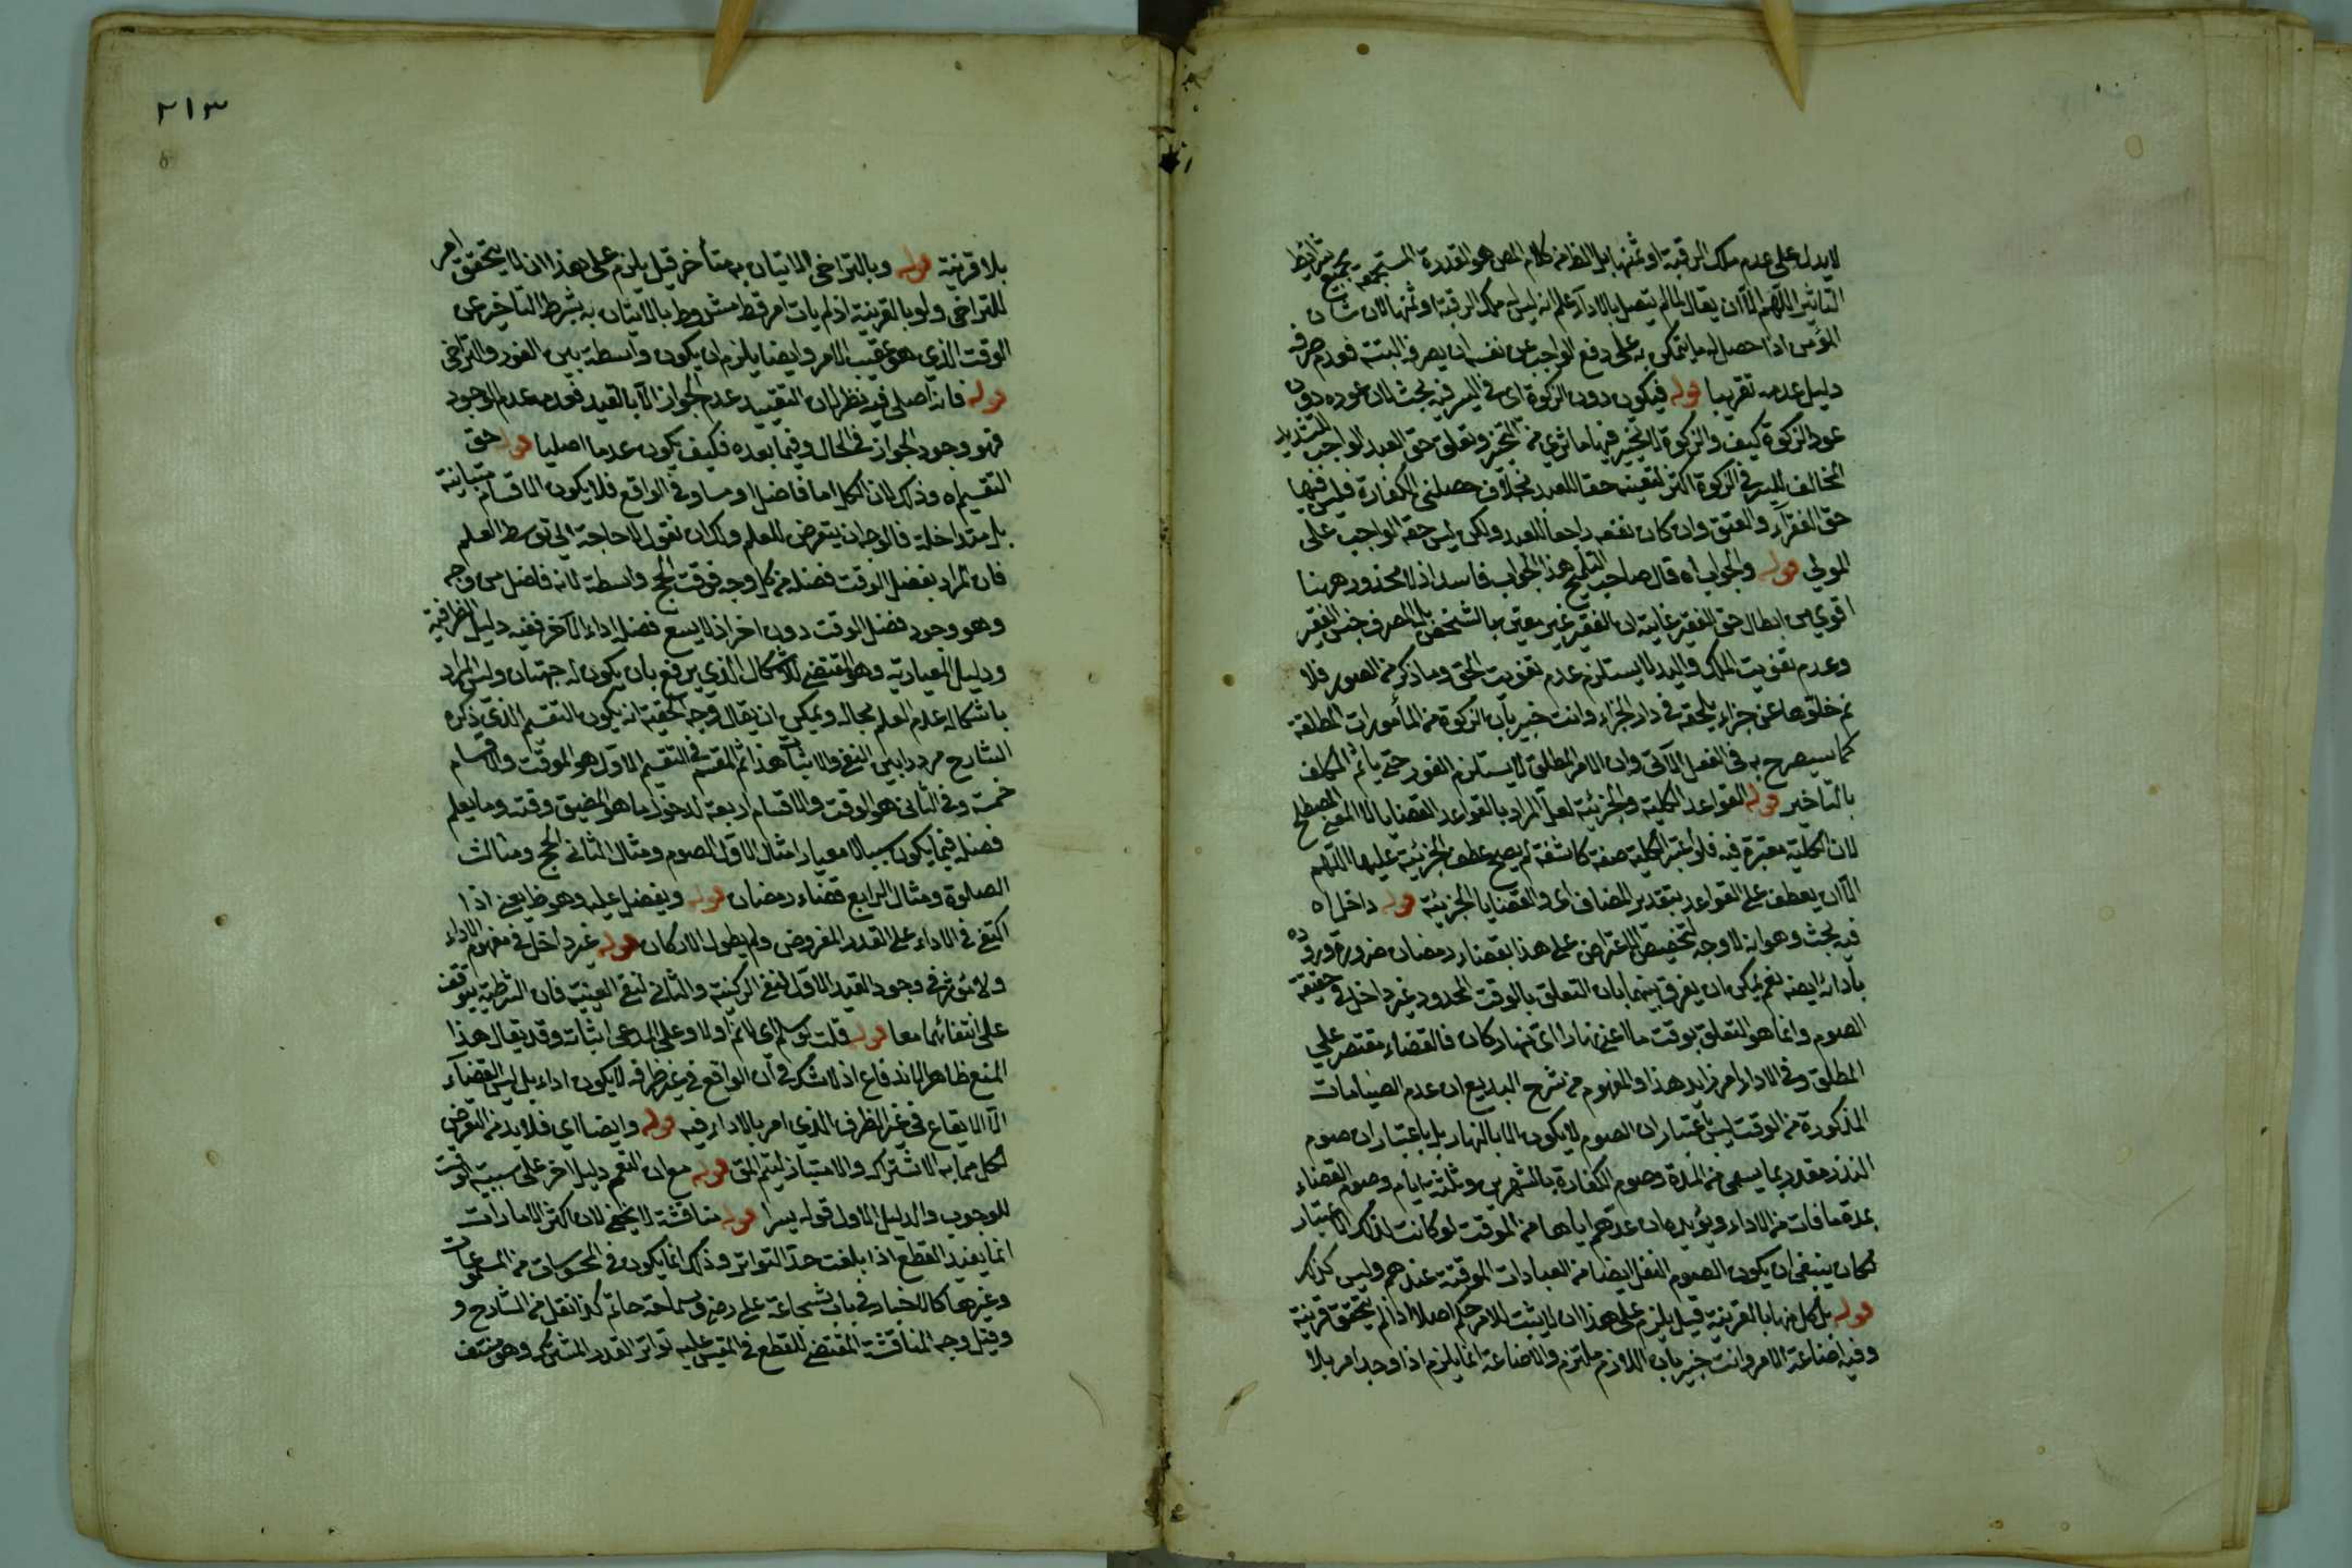 لا يدل على عدم ملك الرقبة او ثمنها بل الظ من كلام المص هو القدرة المستجمعة بجميع شرائط
التاثير اللهم الا ان يقال لما لم يتصل بالاداء علم انه ليس له ملك الرقبة او ثمنها لان شان
المؤمن اذا حصل له ما يتمكن به على دفع الواجب عن نفسه ان يصرفه البتة فعدم صرفه
دليل عدمه تقريبا قوله فيكون دون الزكوة اى فى اليسر فيه بحث لان عوده دون
عود الزكوة كيف والزكوة لا تخيير فيها ما ثري من التخير وتعلق حق العبد الواجب للتشديد
المخالف لليسر فى الزكوة اكثر لتعينه حقا للعبد بخلاف خصلتى الكفارة فليس فيها
حق الفقراء والعتق وان كان نفعه راجعا للعبد ولكن ليس حقه الواجب على
المولى قوله والجواب اه قال صاحب التلويح هذا الجواب فاسد اذ لا محذور ههنا
اقوي من ابطال حق الفقير غايته ان الفقير غير معين بالشخص بل المصرف جنس الفقير
وعدم تفويت الملك واليد لا يستلزم عدم تفويت الحق وما ذكر من الصور فلا
ثم خلوها عن جزاء يلحقه فى دار الجزاء وانت خبير بان الزكوة من المأمورات المطلقة
كما سيصرح به فى الفصل الآتى وان الامر المطلق لا يستلزم الفور حتى يأثم المكلف
بالتاخير قوله القواعد الكلية والجزئية لعل المراد بالقواعد القضايا لا المعنى المصطلح
لان الكلية معتبرة فيه فلو اعتبر الكلية صفة كاشفة لم يصح عطف الجزئية عليها اللهم
الا ان يعطف على القواعد بتقدير المضاف اى والقضايا الجزئية قوله داخل اه
فيه بحث وهو انه لا وجه لتخصيص الاعتراض على هذا بقضاء رمضان ضرورة وروده
بأدائه ايضه نعم يمكن ان يفرق بينهما بان التعلق بالوقت المحدود غير داخل فى حقيقة
الصوم وانما هو التعلق بوقت ما اعنى نهارا اى نهار كان فالقضاء مقتصر على
المطلق وفى الاداء امر زايد هذا والمفهوم من شرح البديع ان عدم الصيامات
المذكورة من الوقت ليس باعتبار ان الصوم لا يكون الا بالنهار بل باعتبار ان صوم
النذر مقدر بما يسمى من المدة وصوم الكفارة بالشهرين وثلثة ايام وصوم القضاء
بعدة ما فات من الاداء ويؤيده ان عدهم اياها من الموقت لو كانت لذلك الاعتبار
لكان ينبغى ان يكون الصوم النفل ايضا من العبادات الموقتة عندهم وليس كذلك
قوله بل كل منها بالقرينة قيل يلزم على هذا ان لا يثبت للامر حكم اصلا اذا لم يتحقق قرينة
وفيه اضاعة الامر وانت خبير بان اللازم ملتزم والاضاعة انما يلزم اذا وجد امر بلا
٢١٣
بلا قرينة قوله وبالتراخى الاتيان به متأخر قيل يلزم على هذا ان لا يتحقق امر
للتراخى ولو بالقرينة اذ لم يات امر قط مشروط بالاتيان به بشرط التاخير عن
الوقت الذي هو عقيب الامر وايضا يلزم ان يكون واسطة بين الفور والتراخى
قوله فانه اصلى فيه نظر لان التقييد عدم الجواز الا بالقيد فعدمه عدم الوجود
فهو وجود الجواز فى الحال وفيما بعده فكيف يكون عدما اصليا قوله حق
التقسيم اه وذلك لان الكل اما فاضل او مساو فى الواقع فلا يكون الاقسام متباينة
بل متداخلة فالوجه ان يتعرض للعلم ولك ان تقول لا حاجة الى توسط العلم
فان المراد بفضل الوقت فضله من كل وجه فوقت الحج واسطة لانه فاضل من وجه
وهو وجود فضل الوقت دون اخر اذ لا يسع فضله اداء الآخر ففيه دليل الظرفية
ودليل المعيارية وهو المقتضى للاشكال الذي يرفع بان يكون له جهتان وليس المراد
باشكاله عدم العلم بحاله ويمكن ان يقال وجه الحقية انه يكون التقسيم الذي ذكره
الشارح مرددا بين النفى والاثبات هذا ثم المقسم فى التقسيم الاول هو الموقت والاقسام
خمسة وفى الثانى هو الوقت والاقسام اربعة لدخول ما هو المضيق وقته وما يعلم
فضله فيما يكون سببا لا معيارا مثال الاول الصوم ومثال الثانى الحج ومثالث
الصلوة ومثال الرابع قضاء رمضان قوله ويفضل عليه وهو ظ يعنى اذا
اكتفى فى الاداء على القدر المفروض ولم يطول الاركان قوله غير داخل فى مفهوم الاداء
ولا مؤثر فى وجود القيد الاول لنفى الركنية والثانى لنفى العينية فان الشرطية يتوقف
على انتفائهما معا قوله قلت لو سلم اى لا ثم اولا وعلى المدعى اثباته وقد يقال هذا
المنع ظاهر الاندفاع اذ لا شك فى ان الواقع فى غير ظرفه لا يكون اداء بل ليس القضاء
الا الايقاع فى غير الظرف الذي امر بالاداء فيه قوله وايضا اي فلا بد من التعرض
لكل مما به الاشتراك والامتياز ليتم المق قوله مع ان النعم دليل اخر على سببية الوقت
للوجوب والدليل الاول قوله يسرا قوله مناقشة لا يخفى لان اكثر الامارات
انما يفيد القطع اذا بلغت حد التواتر وذلك انما يكون فى المحسوسات من المسموعات
وغيرها كالاخبار فى باب شجاعة على رضى وسماحة حاتم كذا نقل من الشارح و
وقيل وجه المناقشة المقتضى للقطع فى المقيس عليه تواتر القدر المشترك وهو منتف